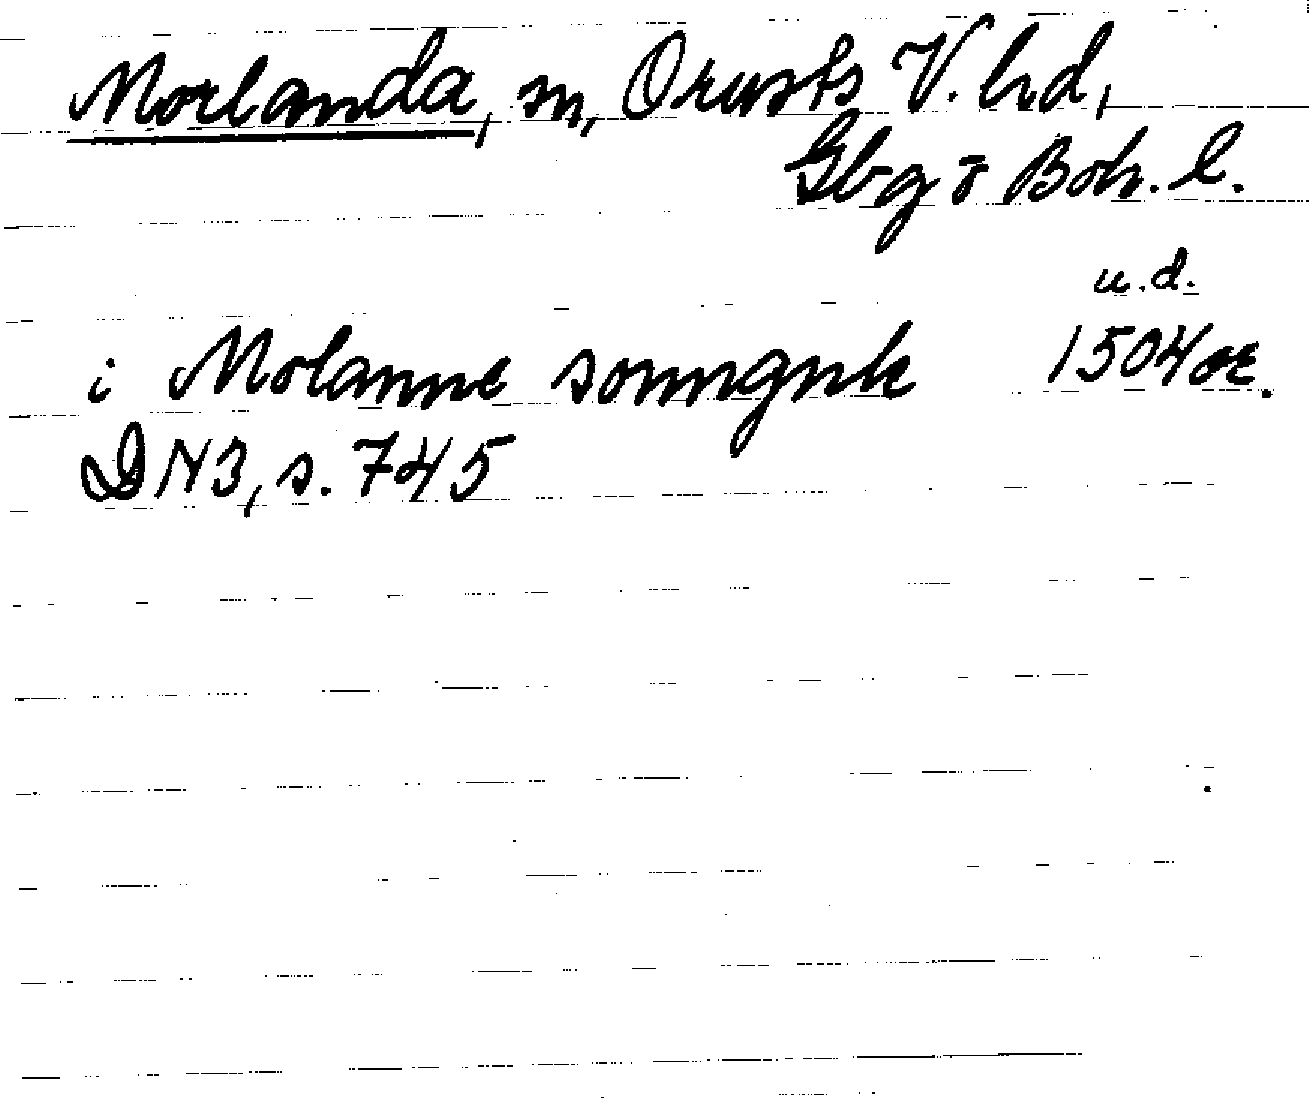 Morlanda, sn, Orusts V. hd,
Gbg o Boh. l.
u.d.
i Molanne sonngnh 1504 or.
DN3, s. 745